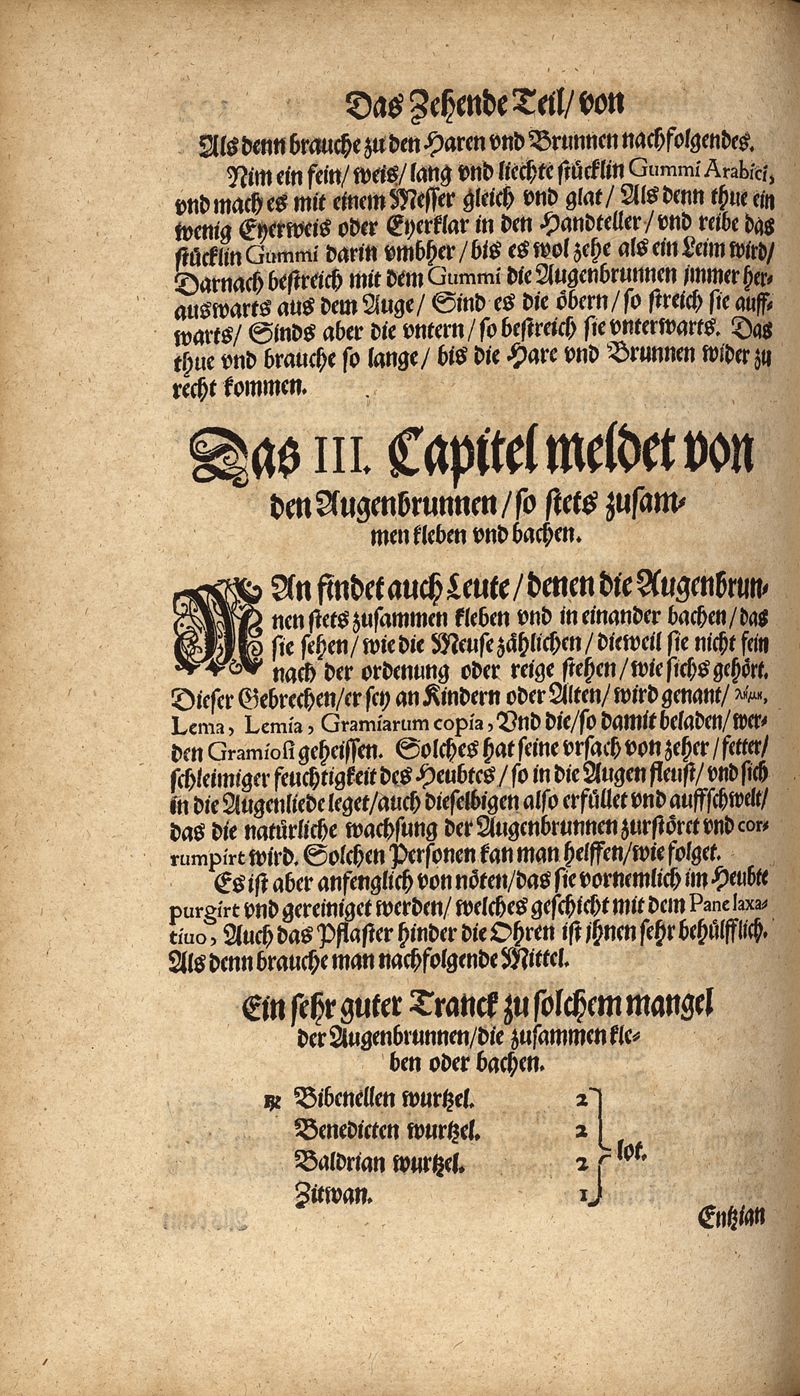 Das Zehende Teil/ von
Als denn brauche zu den Haren vnd Brunnen nachfolgendes.
Nim ein fein/ weis/ lang vnd liechte stücklin Gummi Arabici,
vnd mach es mit einem Messer gleich vnd glat/ Als denn thue ein
wenig Eyerweis oder Eyerklar in den Handteller/ vnd reibe das
stücklin Gummi darin vmbher/ bis es wol zehe als ein Leim wird/
Darnach bestreich mit dem Gummi die Augenbrunnen jmmer her-
auswarts aus dem Auge/ Sind es die öbern/ so streich sie auff-
warts/ Sinds aber die vntern/ so bestreich sie vnterwarts. Das
thue vnd brauche so lange/ bis die Hare vnd Brunnen wider zu
recht kommen.
Das III. Capitel meldet von
den Augenbrunnen/ so stets zusam-
men kleben vnd bachen.
MAn findet auch Leute/ denen die Augenbrun-
nen stets zusammen kleben vnd in einander bachen/ das
sie sehen/ wie die Meuse zählichen/ dieweil sie nicht fein
nach der ordenung oder reige stehen/ wie sichs gehört.
Dieser Gebrechen/ er sey an Kindern oder Alten/ wird genant/ λήμη,
Lema, Lemia, Gramiarum copia, Vnd die/ so damit beladen/ wer-
den Gramiosi geheissen. Solches hat seine vrsach von zeher/ fetter/
schleimiger feuchtigkeit des Heubtes/ so in die Augen fleust/ vnd sich
in die Augenliede leget/ auch dieselbigen also erfüllet vnd auffschwelt/
das die natürliche wachsung der Augenbrunnen zurstöret vnd cor-
rumpirt wird. Solchen Personen kan man helffen/ wie folget.
Es ist aber anfenglich von nöten/ das sie vornemlich im Heubte
purgirt vnd gereiniget werden/ welches geschicht mit dem Pane laxa-
tiuo, Auch das Pflaster hinder die Ohren ist jhnen sehr behülfflich.
Als denn brauche man nachfolgende Mittel.
Ein sehr guter Tranck zu solchem mangel
der Augenbrunnen/ die zusammen kle-
ben oder bachen.
℞ Bibenellen wurtzel. 2
Benedicten wurtzel. 2
Baldrian wurtzel. 2 lot.
Zitwan. 1
Entzian